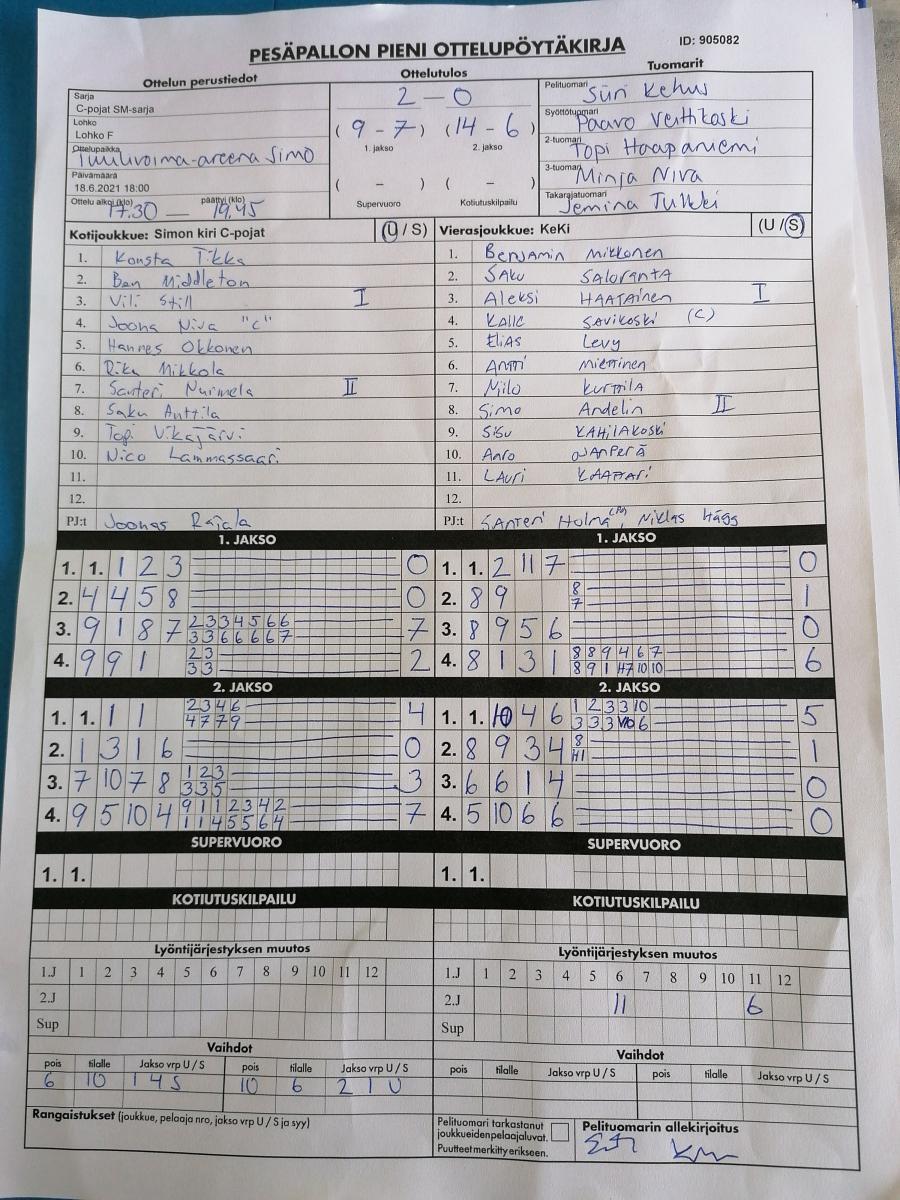 PESÄPALLON PIENI OTTELUPÖYTÄKIRJA
ID: 905082
Ottelun perustiedot
Ottelutulos
Tuomarit
Sarja
C-pojat SM-sarja
Lohko
Lohko F
Ottelupaikka
Tuulivoima-areena Simo
Päivämäärä
18.6.2021 18:00
Ottelu alkoi (klo) päättyi (klo)
17.30 — 19.45
2 - 0
(9 - 7) (14 - 6)
1. jakso 2. jakso
( - ) ( - )
Supervuoro Kotiutuskilpailu
Pelituomari
Siiri Kehus
Syöttötuomari
Paavo
2-tuomari
Topi Haapaniemi
3-tuomari
Minja Niva
Takarajatuomari
Jemina Tulkki
Kotijoukkue: Simon kiri C-pojat (U / S)
1. Konsta Tikka
2. Ben Middleton
3. Vili Still I
4. Joona Niva "C"
5. Hannes Okkonen
6. Riku Mikkola
7. Santeri Nurmela II
8. Saku Anttila
9. Topi Vikajärvi
10. Nico Lammassaari
11.
12.
PJ:t Joonas Rajala
Vierasjoukkue: KeKi (U / S)
1. Benjamin Mikkonen
2. Saku Saloranta
3. Aleksi Haatainen I
4. Kalle Savikoski (C)
5. Elias Levy
6. Antti Miettinen
7. Niilo Kurttila
8. Simo Andelin II
9. Sisu Kahilakoski
10. Aaro Juanperä
11. Lauri Kaattari
12.
PJ:t Santeri Holma, Niklas Hägg
1. JAKSO
1. 1. 1 2 3 0
2. 4 4 5 8 0
3. 9 1 8 7 2 3 3 4 5 6 6 7
3 3 6 6 6 6 7
4. 9 9 1 2 3 2
3 3
1. JAKSO
1. 1. 2 11 7 0
2. 8 9 8 1
7
3. 8 9 5 6 0
4. 8 1 3 1 8 8 9 4 6 7 6
8 9 1 7 10 10
2. JAKSO
1. 1. 1 1 2 3 4 6 4
4 7 7 9
2. 1 3 1 6 0
3. 7 10 7 8 1 2 3 3
3 3 5
4. 9 5 10 4 9 1 1 2 3 4 2 7
1 1 4 5 5 6 4
2. JAKSO
1. 1. 10 4 6 1 2 3 3 10 5
3 3 3 10 6
2. 8 9 3 4 8 1
3. 6 6 1 4 0
4. 5 10 6 6 0
SUPERVUORO
1. 1.
SUPERVUORO
1. 1.
KOTIUTUSKILPAILU
KOTIUTUSKILPAILU
Lyöntijärjestyksen muutos
1.J 1 2 3 4 5 6 7 8 9 10 11 12
2.J
Sup
Lyöntijärjestyksen muutos
1.J 1 2 3 4 5 6 7 8 9 10 11 12
2.J 11 6
Sup
Vaihdot
pois tilalle Jakso vrp U / S pois tilalle Jakso vrp U / S
6 10 1 4 S 10 6 2 1 U
Vaihdot
pois tilalle Jakso vrp U / S pois tilalle Jakso vrp U / S
Rangaistukset (joukkue, pelaaja nro, jakso vrp U / S ja syy)
Pelituomari tarkastanut
joukkueiden pelaajaluvat.
Puutteet merkitty erikseen.
Pelituomarin allekirjoitus